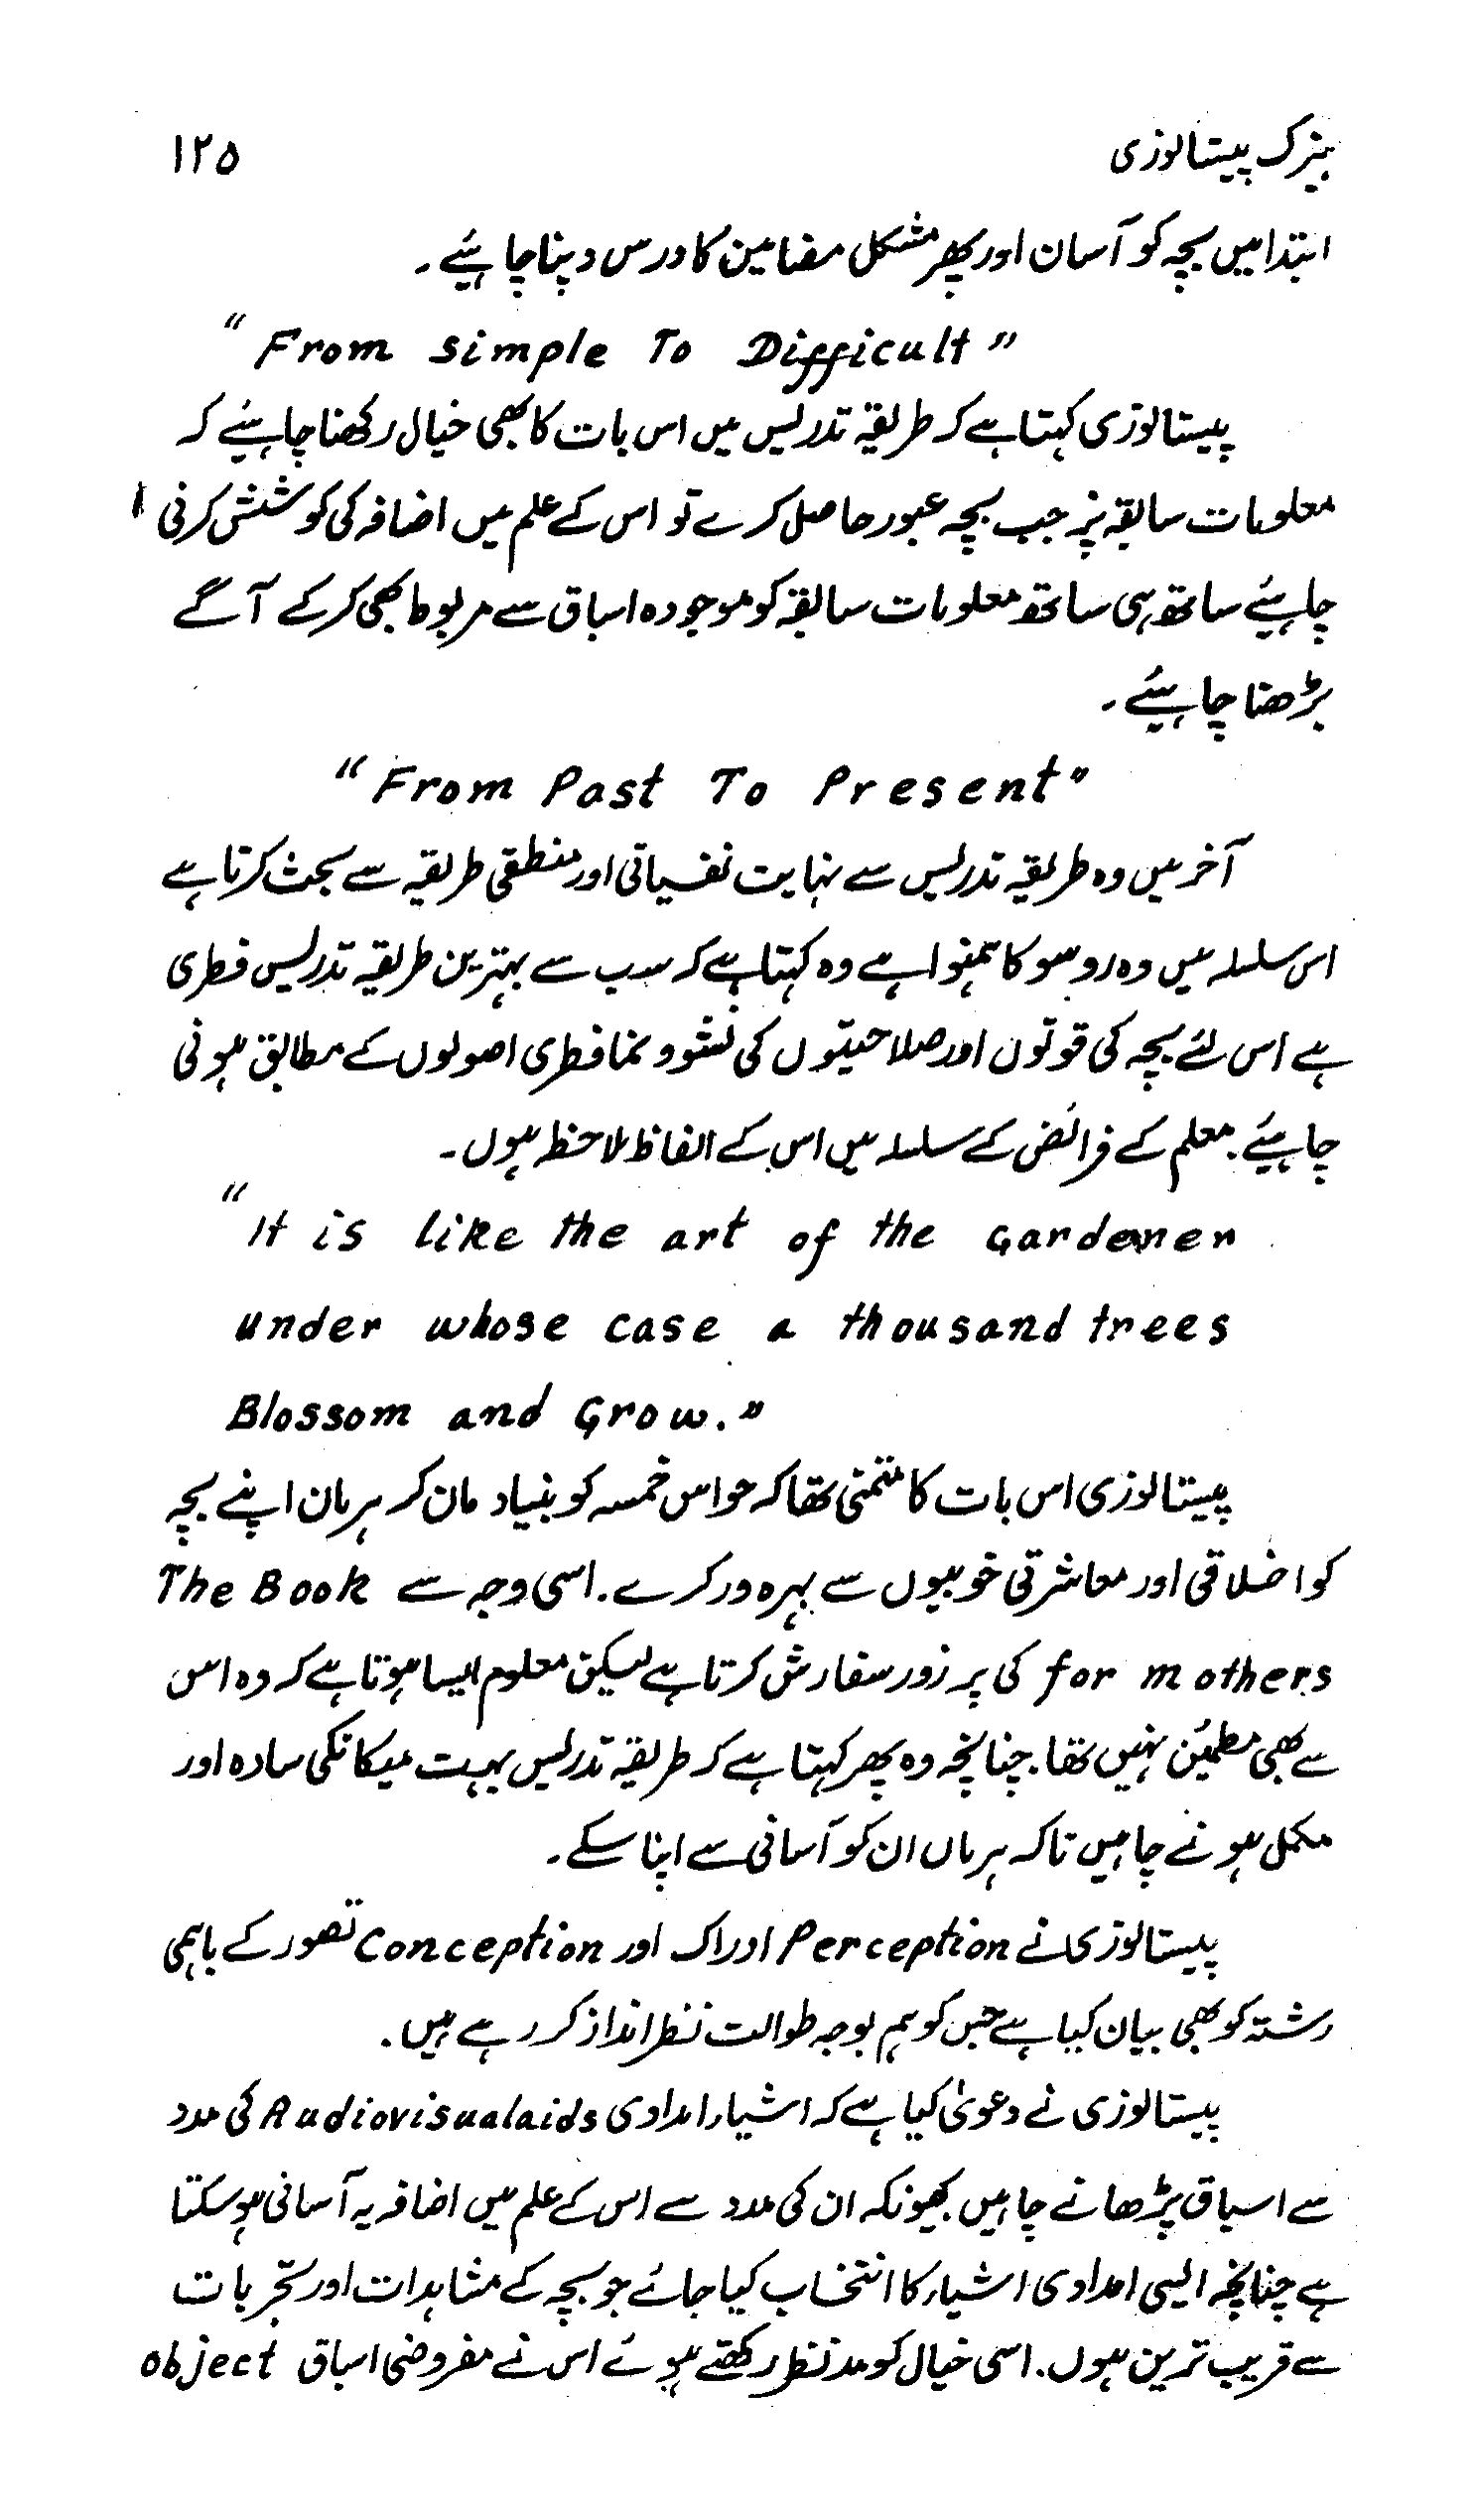 ہنرک پیستالوزی ۱۲۵
ابتدا میں بچہ کو آسان اور پھر مشکل مضامین کا درس دینا چاہیئے۔
"From simple To Difficult"
پیستالوزی کہتا ہے کہ طریقہ تدریس میں اس بات کا بھی خیال رکھنا چاہیئے کہ
معلومات سابقہ پر جب بچہ عبور حاصل کرے تو اس کے علم میں اضافہ کی کوشش کرنی
چاہیئے ساتھ ہی ساتھ معلومات سابقہ کو موجودہ اسباق سے مربوط بھی کر کے آگے
بڑھنا چاہیئے۔
"From Past To Present"
آخر میں وہ طریقہ تدریس سے نہایت نفسیاتی اور منطقی طریقہ سے بحث کرتا ہے
اس سلسلہ میں وہ روسو کا ہمنوا ہے وہ کہتا ہے کہ سب سے بہترین طریقہ تدریس فطری
ہے اس لئے بچہ کی قوتوں اور صلاحیتوں کی نشوونما فطری اصولوں کے مطابق ہونی
چاہیئے۔ معلم کے فرائض کے سلسلہ میں اس کے الفاظ ملاحظہ ہوں۔
"It is like the art of the Gardener
under whose case a thousand trees
Blossom and Grow."
پیستالوزی اس بات کا متمنی تھا کہ حواس خمسہ کو بنیاد مان کر ہر ماں اپنے بچہ
کو اخلاقی اور معاشرتی خوبیوں سے بہرہ ور کرے۔ اسی وجہ سے The Book
for mothers کی پر زور سفارش کرتا ہے لیکن معلوم ایسا ہوتا ہے کہ وہ اس
سے بھی مطمئن نہیں تھا۔ چنانچہ وہ پھر کہتا ہے کہ طریقہ تدریس بہت میکانکی سادہ اور
مکمل ہونے چاہیں تاکہ ہر ماں ان کو آسانی سے اپنا سکے۔
پیستالوزی نے Perception ادراک اور Conception تصور کے باہمی
رشتہ کو بھی بیان کیا ہے جس کو ہم بوجہ طوالت نظر انداز کر رہے ہیں۔
پیستالوزی نے دعویٰ کیا ہے کہ اشیاء امدادی Audiovisualaids کی مدد
سے اسباق پڑھانے چاہیں کیونکہ ان کی مدد سے اس کے علم میں اضافہ بہ آسانی ہو سکتا
ہے چنانچہ ایسی امدادی اشیاء کا انتخاب کیا جائے جو بچہ کے مشاہدات اور تجربات
سے قریب ترین ہوں۔ اسی خیال کو مدنظر رکھتے ہوئے اس نے مفروضی اسباق object